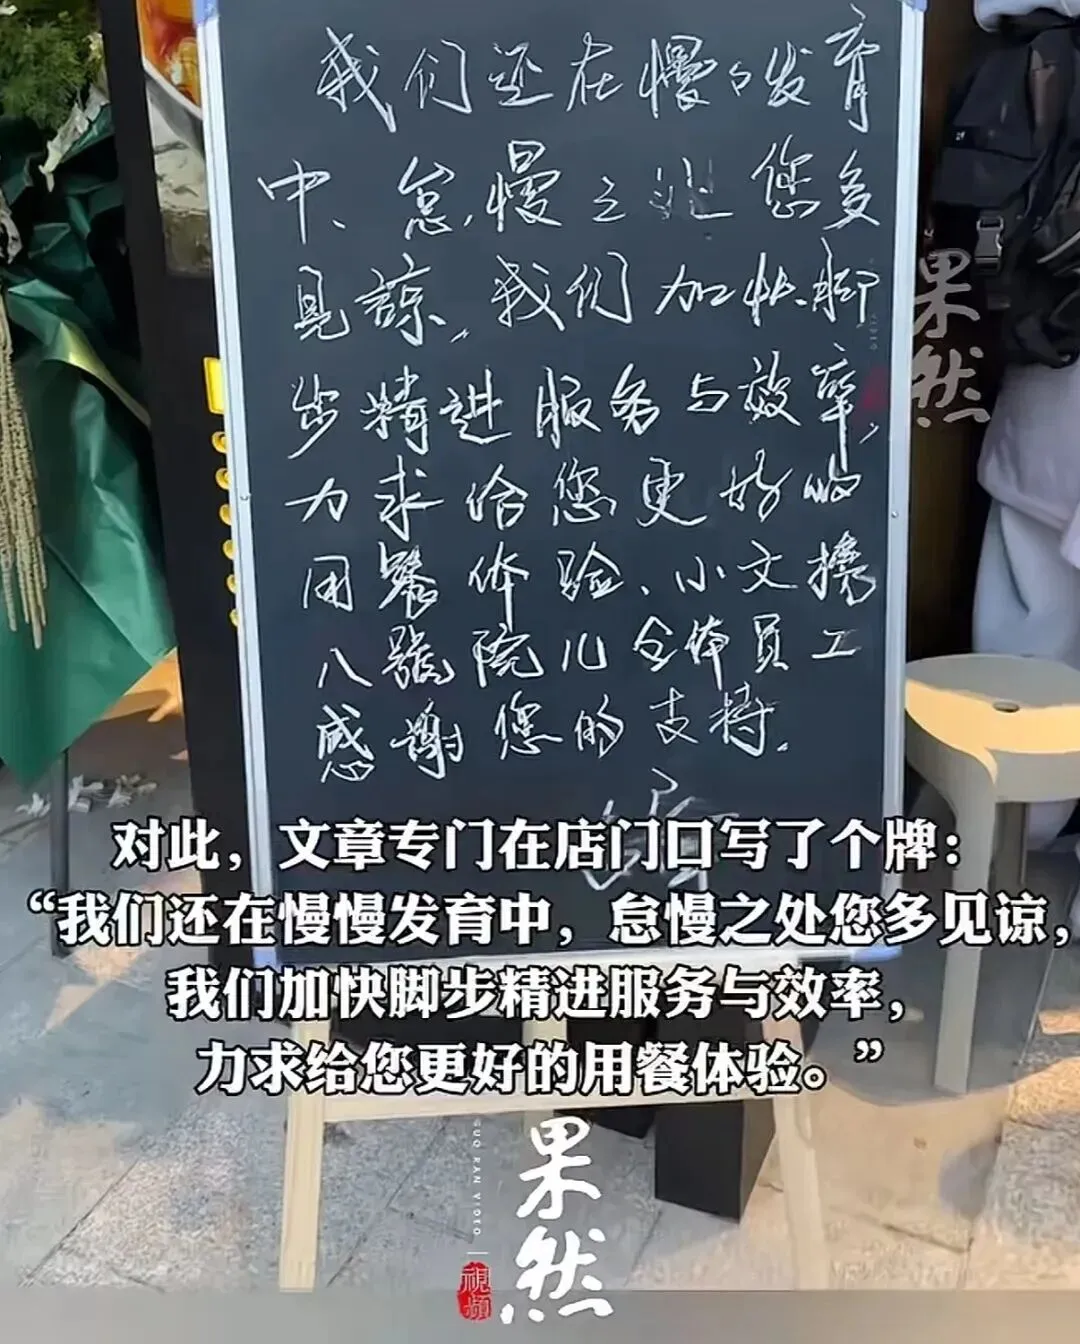 我们还在慢々发育
中、怠慢之处您多
见谅,我们加快脚
步精进服务与效率,
力求给您更好的
用餐体验、小文挠
八號院儿全体员工
感谢您的支持.
果然
对此，文章专门在店门口写了个牌：
“我们还在慢慢发育中，怠慢之处您多见谅，
我们加快脚步精进服务与效率，
力求给您更好的用餐体验。”
果然
GUO RAN VIDEO
視頻